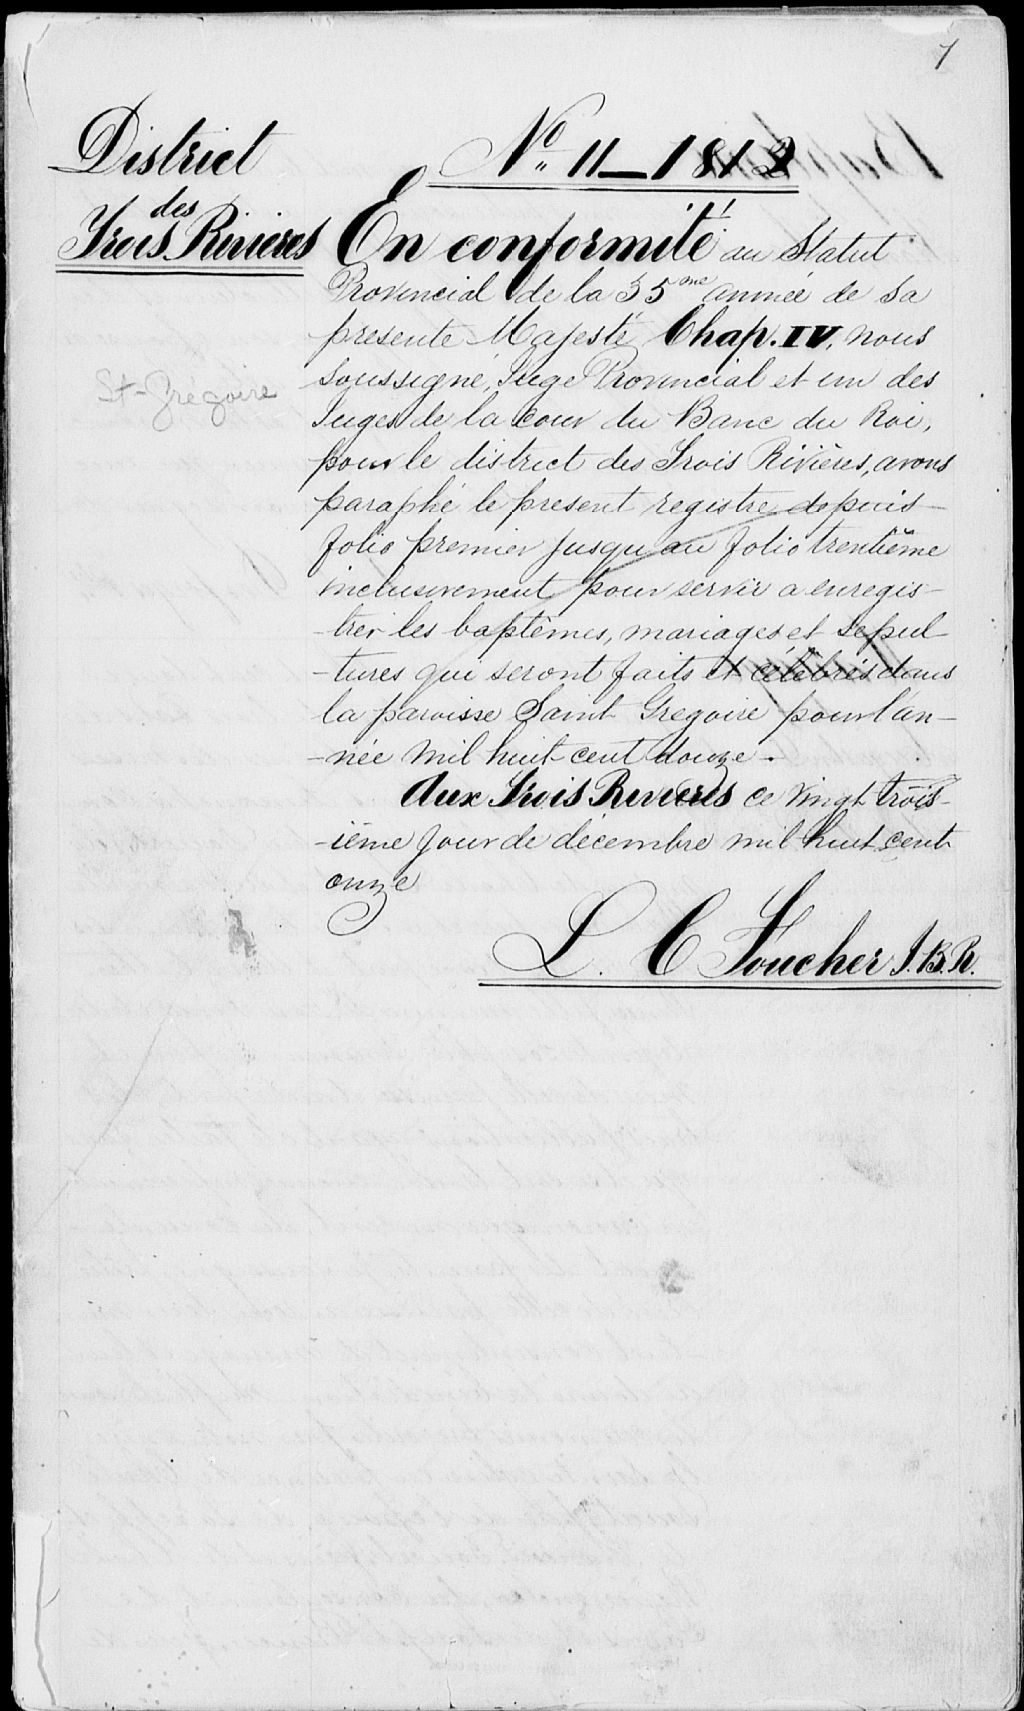 1
District
des
Trois Rivieres
St-Grégoire
No. 11 — 1812
En conformité au Statut
Provincial de la 35me année de sa
presente Majesté Chap. IV, nous
Soussigné, Juge Provincial et un des
Juges de la Cour du Banc du Roi,
pour le district des Trois Rivières, avons
paraphé le present registre depuis
folio premier jusqu'au folio trentième
inclusivement pour servir a enregis-
-trer les baptêmes, mariages et sépul-
-tures qui seront faits et célébrés dans
la paroisse Saint Gregoire pour l'an-
-née mil huit cent douze.
Aux Trois Rivieres ce vingt trois-
-ième jour de décembre mil huit cent
onze
L. C Foucher J.B.R.